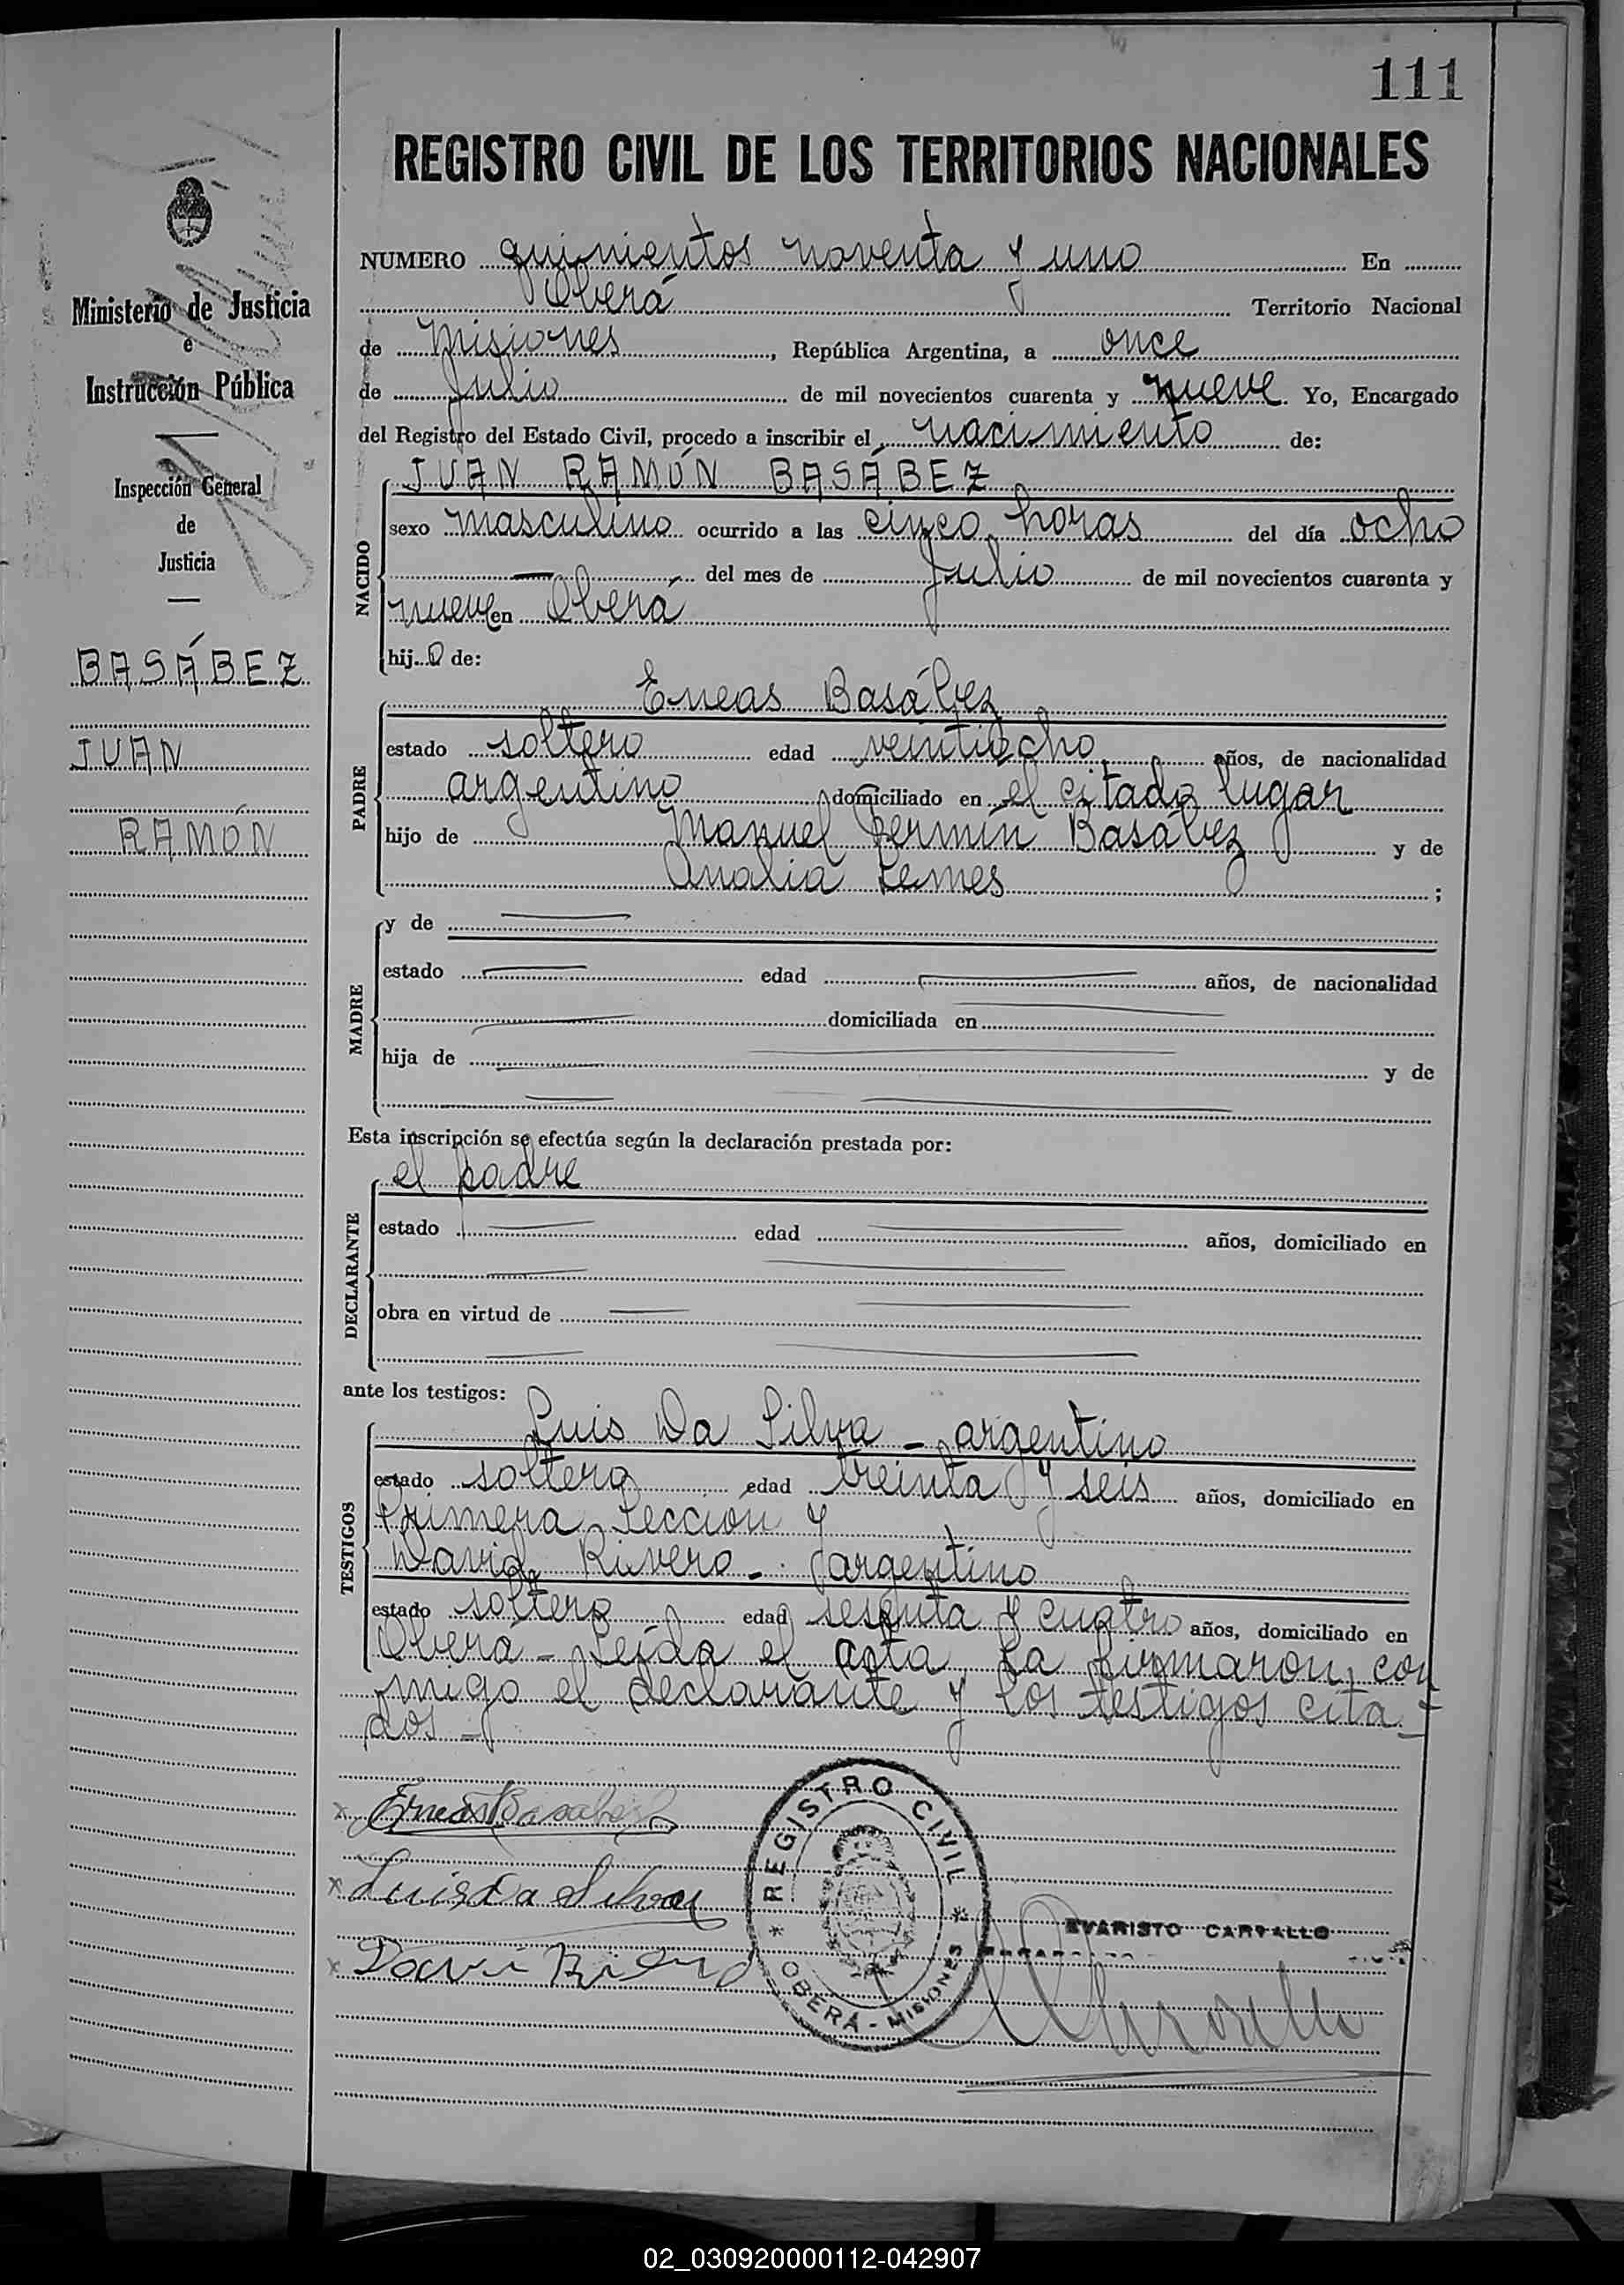 111
REGISTRO CIVIL DE LOS TERRITORIOS NACIONALES
Ministerio de Justicia
e
Instrucción Pública
Inspección General
de
Justicia
BASÁBEZ
JUAN
RAMÓN
NUMERO quinientos noventa y uno En
Oberá Territorio Nacional
de Misiones, República Argentina, a once
de Julio de mil novecientos cuarenta y nueve. Yo, Encargado
del Registro del Estado Civil, procedo a inscribir el nacimiento de:
JUAN RAMÓN BASÁBEZ
NACIDO
sexo masculino ocurrido a las cinco horas del día ocho
— del mes de Julio de mil novecientos cuarenta y
nueve en Oberá
hijo de:
Eneas Basábez
PADRE
estado soltero edad veintiocho años, de nacionalidad
argentino domiciliado en el citado lugar
hijo de Manuel Fermín Basábez y de
Analia Lemes;
MADRE
y de —
estado — edad — años, de nacionalidad
— domiciliada en —
hija de — y de
—
Esta inscripción se efectúa según la declaración prestada por:
el padre
DECLARANTE
estado — edad — años, domiciliado en
—
obra en virtud de —
—
ante los testigos:
Luis Da Silva - argentino
TESTIGOS
estado soltero edad treinta y seis años, domiciliado en
Primera Sección y
David Rivero - argentino
estado soltero edad sesenta y cuatro años, domiciliado en
Oberá - Leída el acta, la firmaron con
migo el declarante y los testigos cita-
dos -
x Eneas Basabez
x Luis Da Silva
x Davi Rivero
REGISTRO CIVIL
* OBERÁ - MISIONES *
EVARISTO CARVALLO
02_030920000112-042907